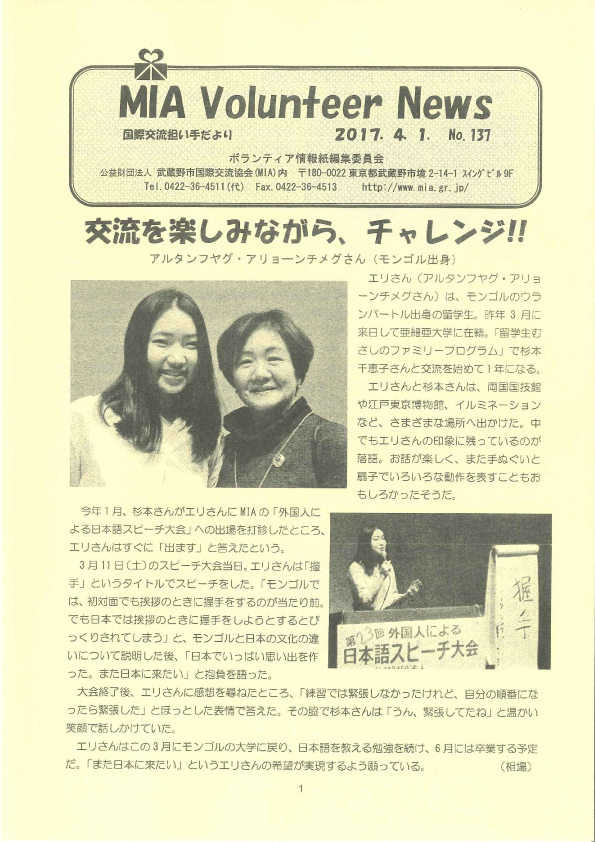 MIA Volunteer News
国際交流担い手だより 2017. 4. 1. No. 137
ボランティア情報紙編集委員会
公益財団法人 武蔵野市国際交流協会(MIA)内 〒180-0022 東京都武蔵野市境 2-14-1 スイングビル 9F
Tel.0422-36-4511(代) Fax.0422-36-4513 http://www.mia.gr.jp/
交流を楽しみながら、チャレンジ!!
アルタンフヤグ・アリョーンチメグさん（モンゴル出身）
エリさん（アルタンフヤグ・アリョ
ーンチメグさん）は、モンゴルのウラ
ンバートル出身の留学生。昨年 3 月に
来日して亜細亜大学に在籍。「留学生む
さしのファミリープログラム」で杉本
千恵子さんと交流を始めて 1 年になる。
エリさんと杉本さんは、両国国技館
や江戸東京博物館、イルミネーション
など、さまざまな場所へ出かけた。中
でもエリさんの印象に残っているのが
落語。お話が楽しく、また手ぬぐいと
扇子でいろいろな動作を表すこともお
もしろかったそうだ。
今年 1 月、杉本さんがエリさんに MIA の「外国人に
よる日本語スピーチ大会」への出場を打診したところ、
エリさんはすぐに「出ます」と答えたという。
3 月 11 日（土）のスピーチ大会当日。エリさんは「握
手」というタイトルでスピーチをした。「モンゴルで
は、初対面でも挨拶のときに握手をするのが当たり前。
でも日本では挨拶のときに握手をしようとするとび
っくりされてしまう」と、モンゴルと日本の文化の違
いについて説明した後、「日本でいっぱい思い出を作
った。また日本に来たい」と抱負を語った。
第23回 外国人による
日本語スピーチ大会
握手
大会終了後、エリさんに感想を尋ねたところ、「練習では緊張しなかったけれど、自分の順番にな
ったら緊張した」とほっとした表情で答えた。その脇で杉本さんは「うん、緊張してたね」と温かい
笑顔で話しかけていた。
エリさんはこの 3 月にモンゴルの大学に戻り、日本語を教える勉強を続け、6 月には卒業する予定
だ。「また日本に来たい」というエリさんの希望が実現するよう願っている。 （祖場）
1